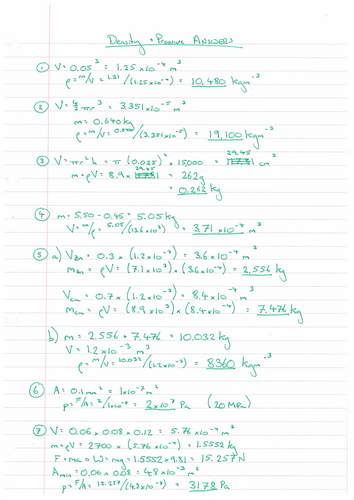 Density + Pressure ANSWERS
① V = 0.05³ = 1.25 x10⁻⁴ m³
ρ = m/V = 1.31/(1.25x10⁻⁴) = 10,480 kgm⁻³
② V = 4/3 πr³ = 3.351x10⁻⁵ m³
m = 0.640kg
ρ = m/V = 0.640/(3.351x10⁻⁵) = 19,100 kgm⁻³
③ V = πr²h = π (0.025)² x 15,000 = 29.45 cm³
m = ρV = 8.9 x 29.45 = 262g
= 0.262 kg
④ m = 5.50 - 0.45 = 5.05 kg
V = m/ρ = 5.05/(13.6x10³) = 3.71 x10⁻⁴ m³
⑤ a) V = 0.3 x (1.2x10⁻³) = 3.6x10⁻⁴ m³
m = ρV = (7.1x10³) x (3.6x10⁻⁴) = 2.556 kg
V = 0.7 x (1.2x10⁻³) = 8.4x10⁻⁴ m³
m = ρV = (8.9x10³) x (8.4x10⁻⁴) = 7.476 kg
b) m = 2.556 + 7.476 = 10.032 kg
V = 1.2x10⁻³ m³
ρ = m/V = 10.032/(1.2x10⁻³) = 8360 kgm⁻³
⑥ A = 0.1mm² = 1x10⁻⁷ m²
p = F/A = 2/1x10⁻⁷ = 2x10⁷ Pa (20 MPa)
⑦ V = 0.06 x 0.08 x 0.12 = 5.76 x10⁻⁴ m³
m = ρV = 2700 x (5.76 x10⁻⁴) = 1.5552 kg
F = ma ∴ W = mg = 1.5552 x 9.81 = 15.257N
A = 0.06 x 0.08 = 4.8x10⁻³ m²
p = F/A = 15.257/(4.8x10⁻³) = 3178 Pa